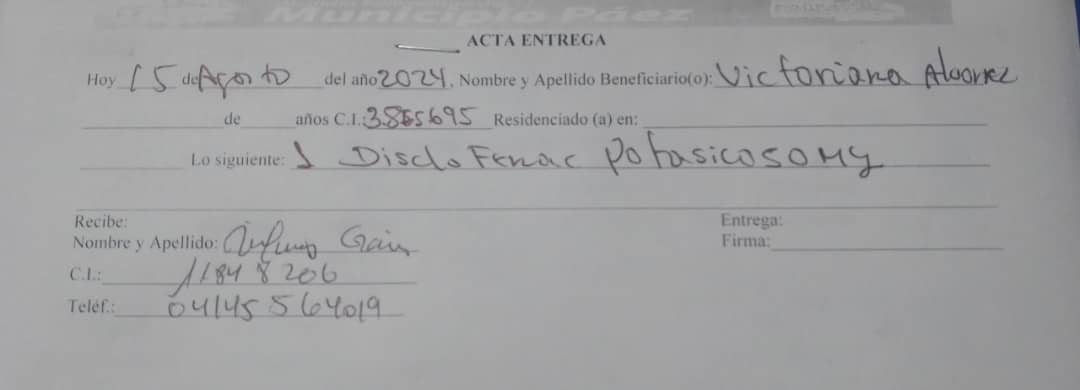 Municipio Páez
ACTA ENTREGA
Hoy 15 de Agosto del año 2024, Nombre y Apellido Beneficiario(o): Victoriana Alvarez
de años C.I.: 3855695 Residenciado (a) en:
Lo siguiente: 1 Disclofenac potasico 50 Mg
Recibe:
Entrega:
Nombre y Apellido:
Firma:
C.I.: 11848206
Teléf.: 04145564019